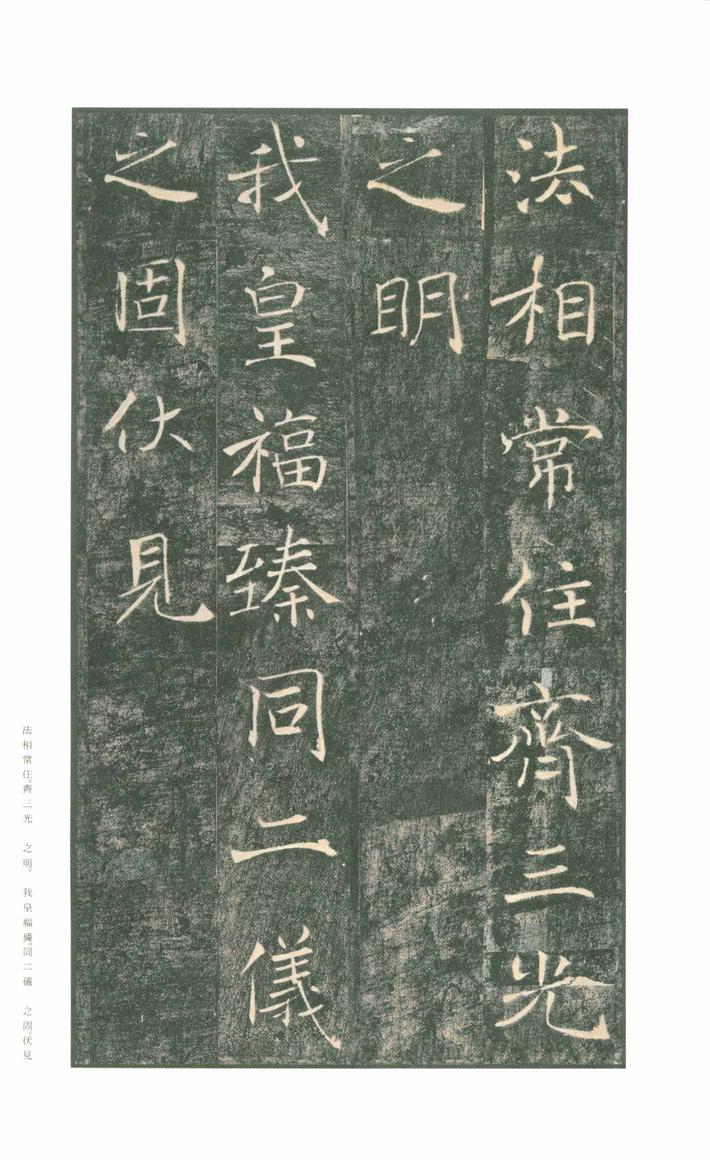 法相常住齊三光
之明
我皇福臻同二儀
之固伏見
法相常住。齊三光 之明。 我皇福臻。同二儀 之固。伏見